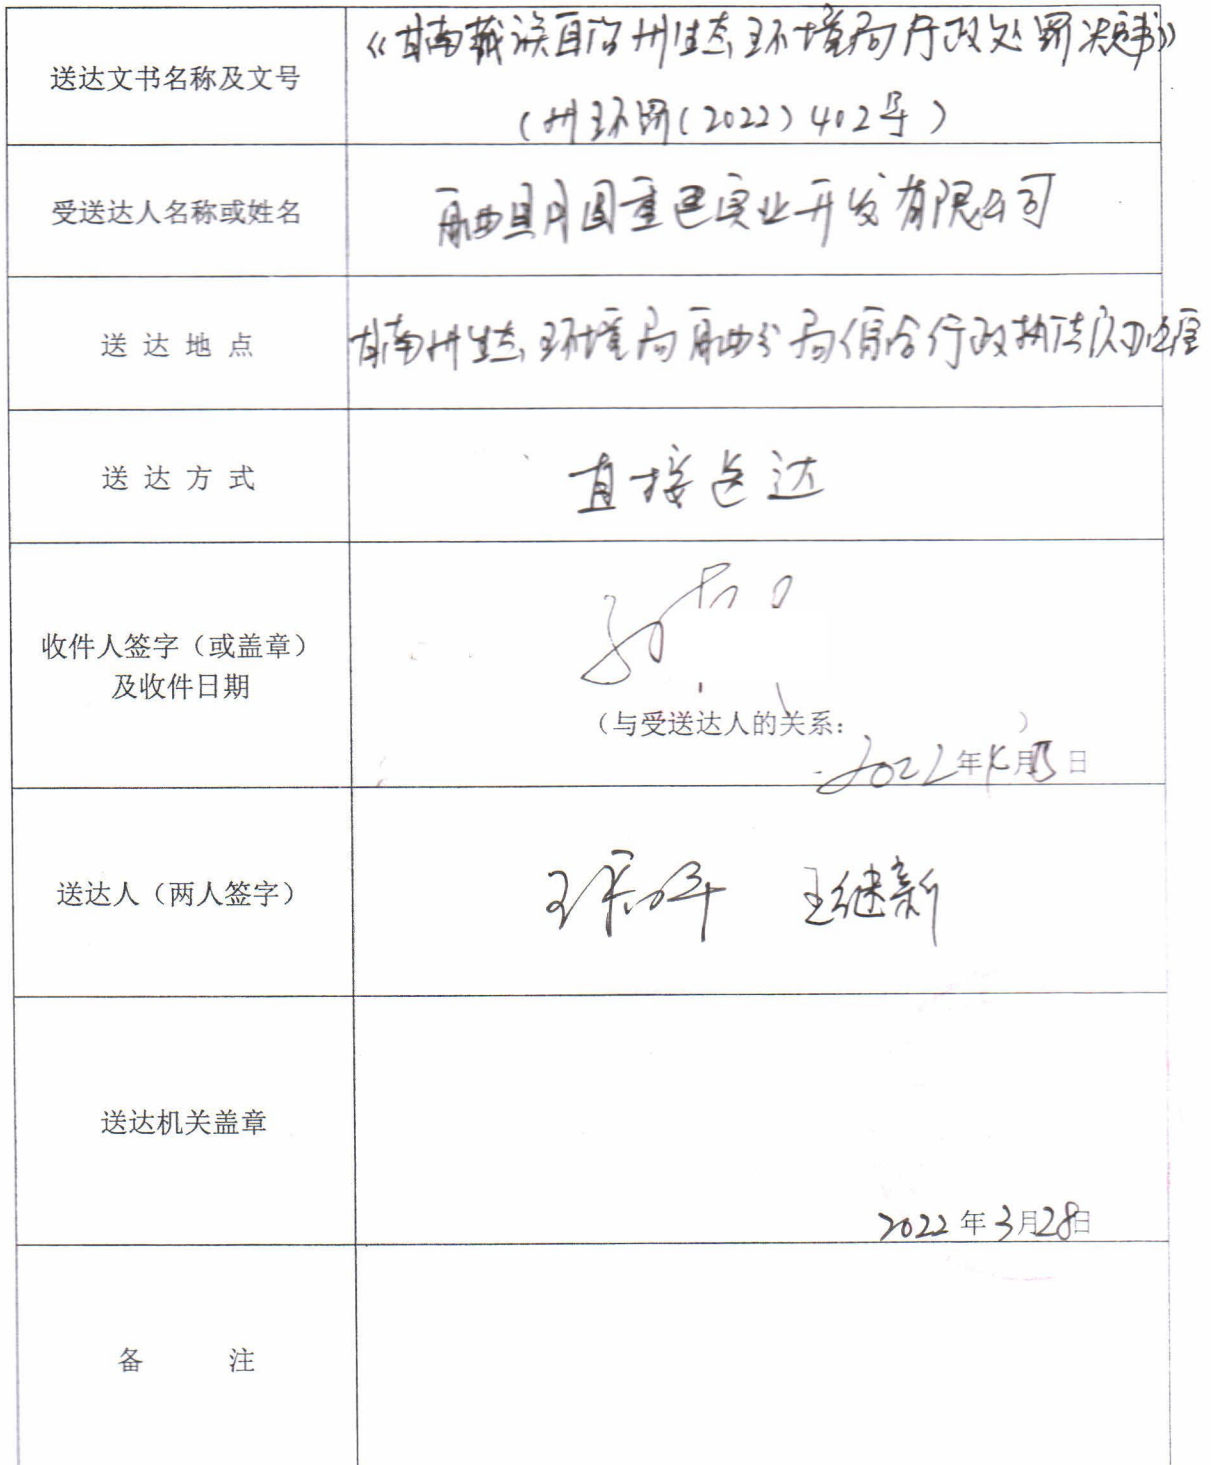 送达文书名称及文号
《甘南藏族自治州生态环境局行政处罚决定书》
(州环罚(2022)402号)
受送达人名称或姓名
舟曲县月圆重建实业开发有限公司
送达地点
甘南州生态环境局舟曲分局综合行政执法队办公室
送达方式
直接送达
收件人签字(或盖章)
及收件日期
(与受送达人的关系: )
2022年 月 日
送达人(两人签字)
王 王继新
送达机关盖章
2022年3月28日
备 注